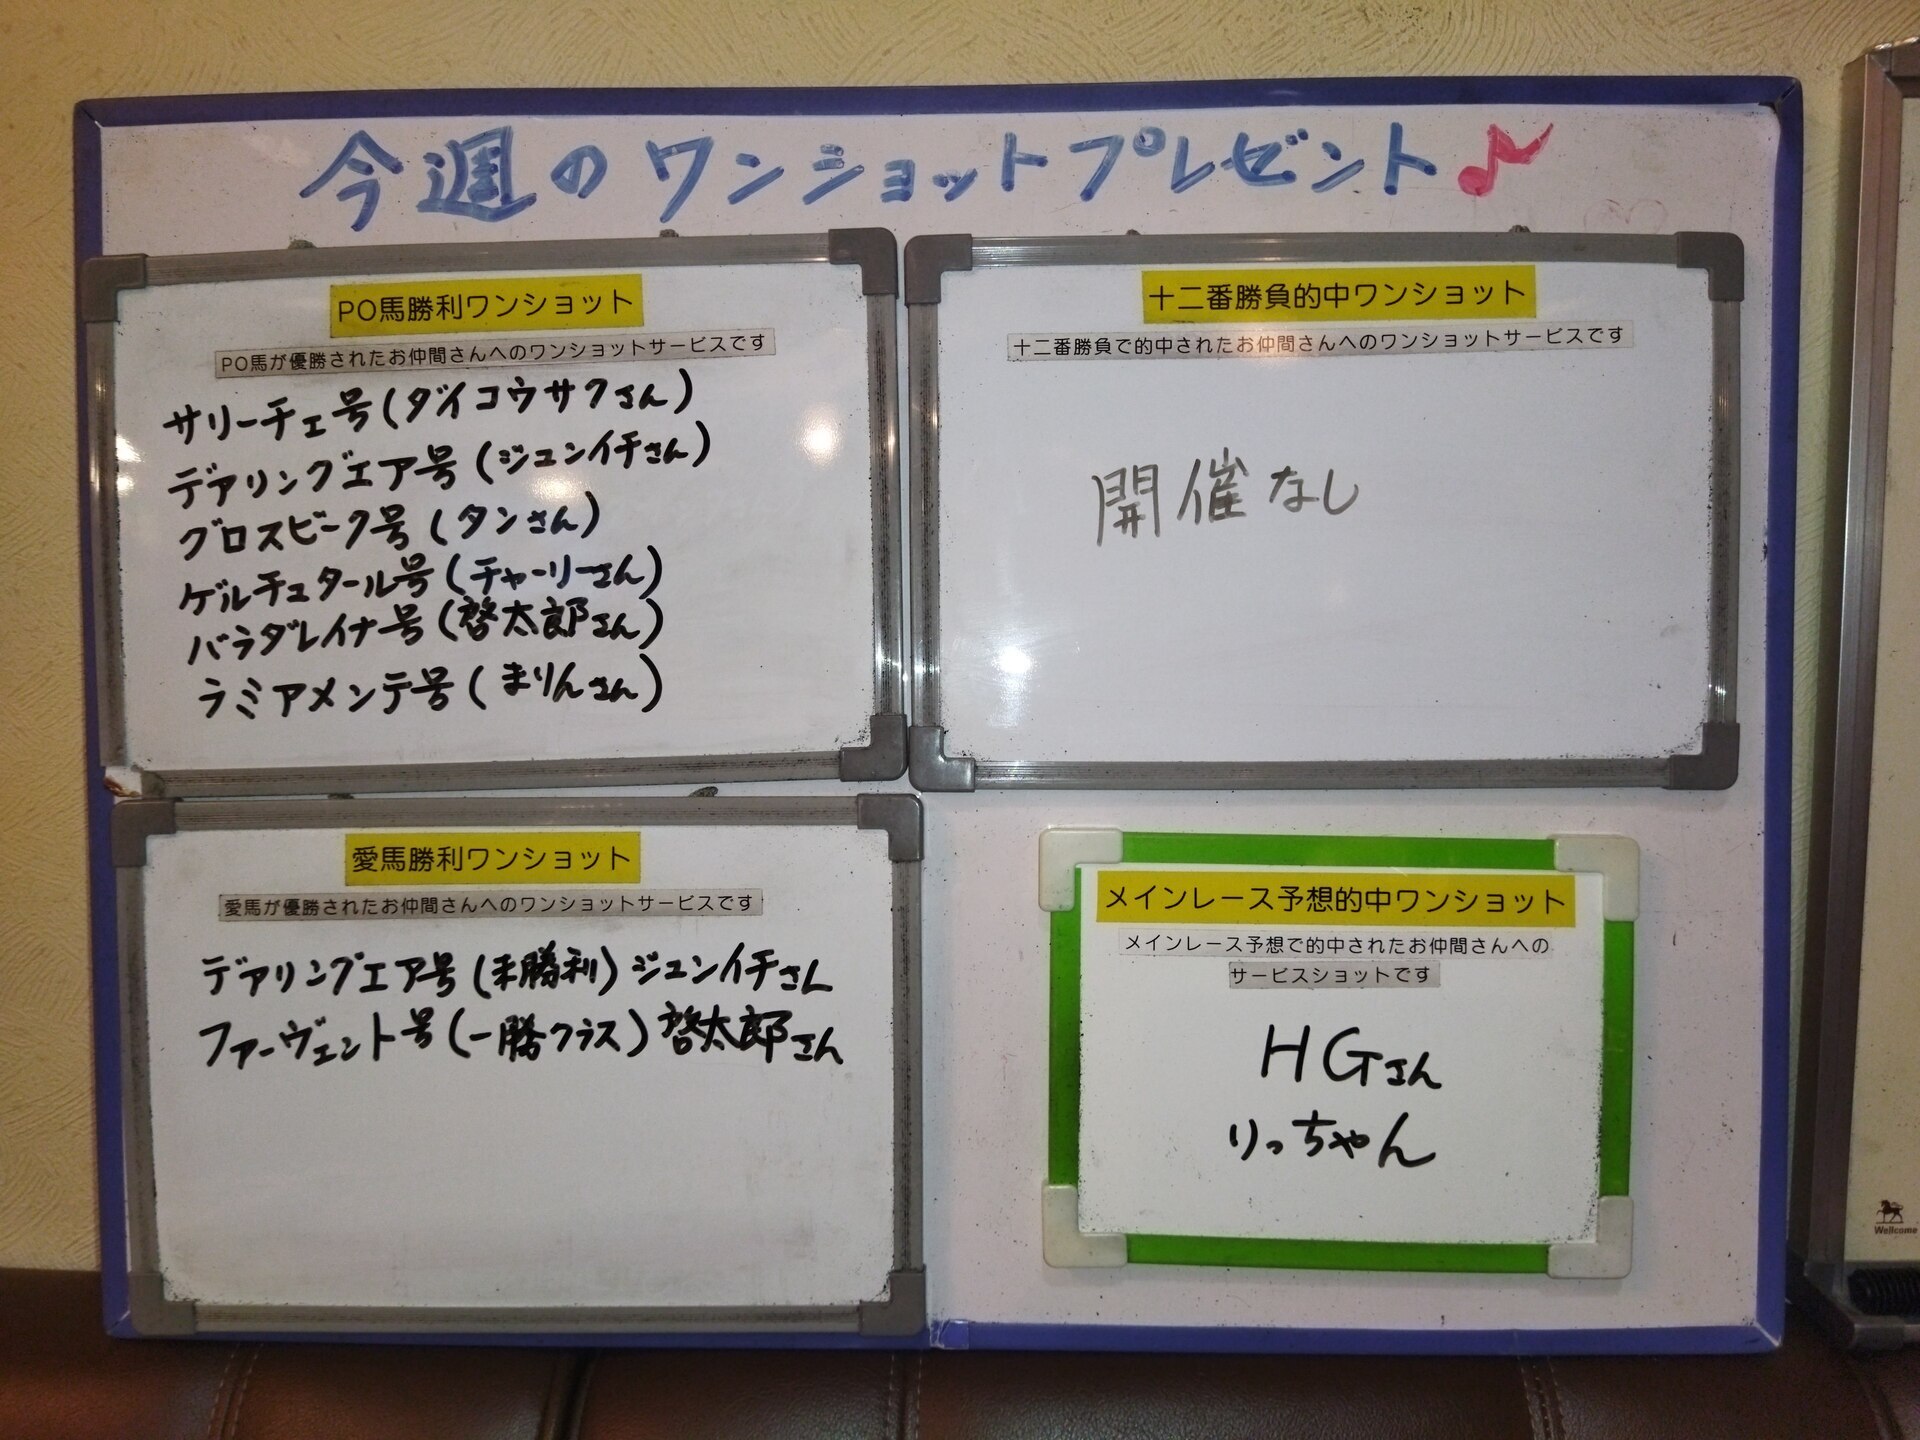 今週のワンショットプレゼント♪
PO馬勝利ワンショット
PO馬が優勝されたお仲間さんへのワンショットサービスです
サリーチェ号(ダイコウサクさん)
デアリングエア号(ジュンイチさん)
グロスビーク号(タンさん)
ゲルチュタール号(チャーリーさん)
バラダレイナ号(啓太郎さん)
ラミアメンテ号(まりんさん)
十二番勝負的中ワンショット
十二番勝負で的中されたお仲間さんへのワンショットサービスです
開催なし
愛馬勝利ワンショット
愛馬が優勝されたお仲間さんへのワンショットサービスです
デアリングエア号(未勝利)ジュンイチさん
ファーヴェント号(一勝クラス)啓太郎さん
メインレース予想的中ワンショット
メインレース予想で的中されたお仲間さんへの
サービスショットです
HGさん
りっちゃん
Wellcome